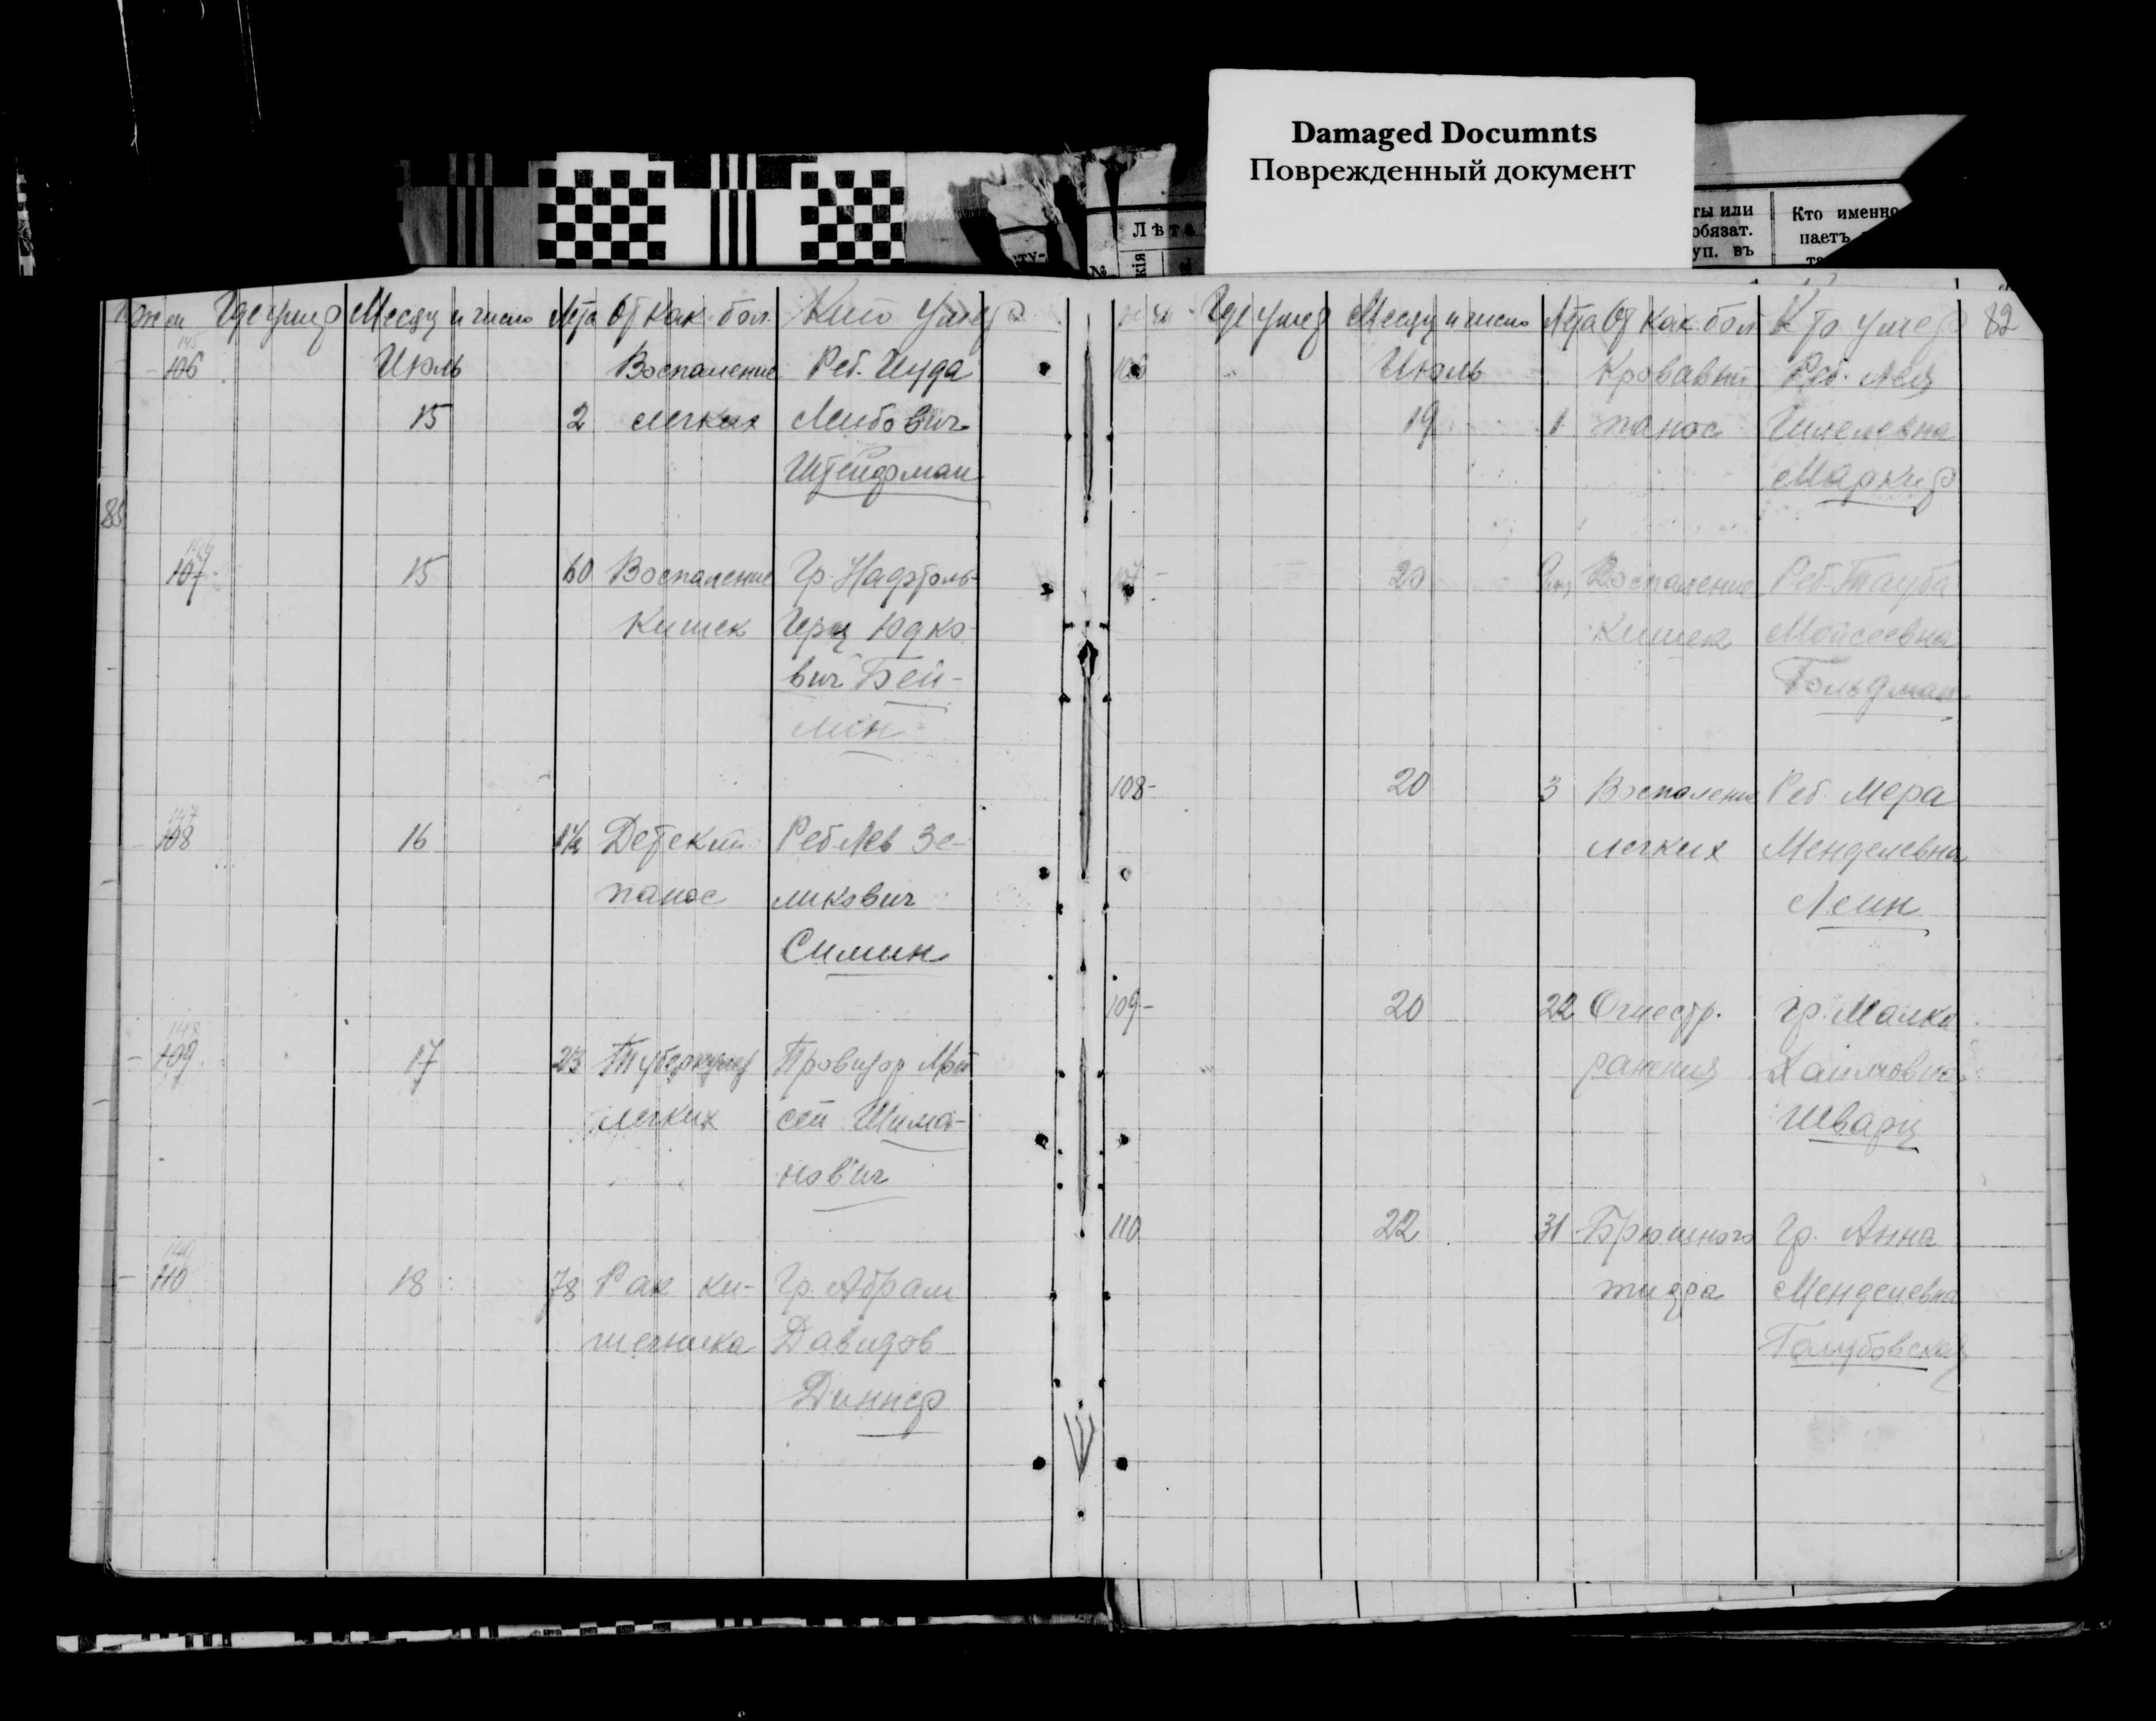 Damaged Documnts
Поврежденный документ
Лѣта
ты или
обязат.
уп. въ
Кто именно
паетъ
Где умер Месяц и число Лета От как. бол. Кто умер
145
106 Июль Воспаление Реб. Иуда
15 2 легких Лейбович
Штейфман
85
107 15 60 Воспаление Гр. Нафтоль-
кишек Герц Юдко-
вич Бей-
лин
147
108 16 1½ Детский Реб. Лев Зе-
панос ликович
Симин
148
109 17 23 Туберкулез Провизор Мои
легких сей Шима-
нович
149
110 18 78 Рак ки- Гр. Абрам
шечника Давидов
Диннер
Где умер Месяц и число Лета От как. бол. Кто умер 82
106 " Июль Кровавый Реб. Лея
19 1 панос Гилелевна
Маркир
107 - 20 Воспаление Реб. Тауба
кишек Мойсеевна
Гольдман
108 - 20 3 Воспаление Реб. Мера
легких Менделевна
Леин
109 - 20 22 Огнестр. гр. Малка
ранения Хаимовна
Шварц
110 22 31 Брюшного гр. Анна
тифа Менделевна
Голубовская